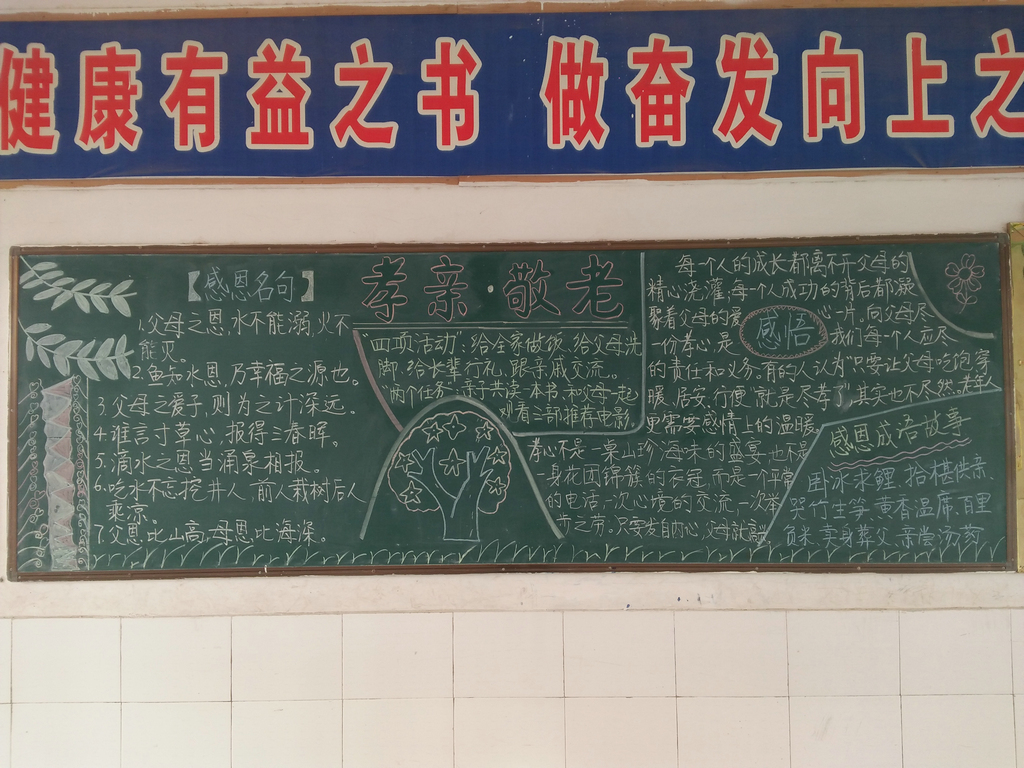 健康有益之书 做奋发向上之
【感恩名句】
1.父母之恩,水不能溺,火不
能灭。
2.鱼知水恩,乃幸福之源也。
3.父母之爱子,则为之计深远。
4.谁言寸草心,报得三春晖。
5.滴水之恩当涌泉相报。
6.吃水不忘挖井人,前人栽树后人
乘凉。
7.父恩比山高,母恩比海深。
孝亲·敬老
"四项活动":给全家做饭、给父母洗
脚、给长辈行礼、跟亲戚交流。
"两个任务":亲子共读一本书,和父母一起
观看三部推荐电影。
每个人的成长都离不开父母的
精心浇灌,每一个人成功的背后都凝
聚着父母的爱心一片。向父母尽
一份孝心,是我们每一个人应尽
的责任和义务。有的人认为"只要让父母吃饱、穿
暖、居安、行便,就是尽孝了"其实也不尽然。老年人
更需要感情上的温暖。
感悟
孝心不是一桌山珍海味的盛宴,也不是
一身花团锦簇的衣冠,而是一个平常
的电话,一次心境的交流,一次举
手之劳。只要发自内心,父母就
感恩成语故事
卧冰求鲤、拾椹供亲
哭竹生笋、黄香温席、百里
负米、卖身葬父、亲尝汤药